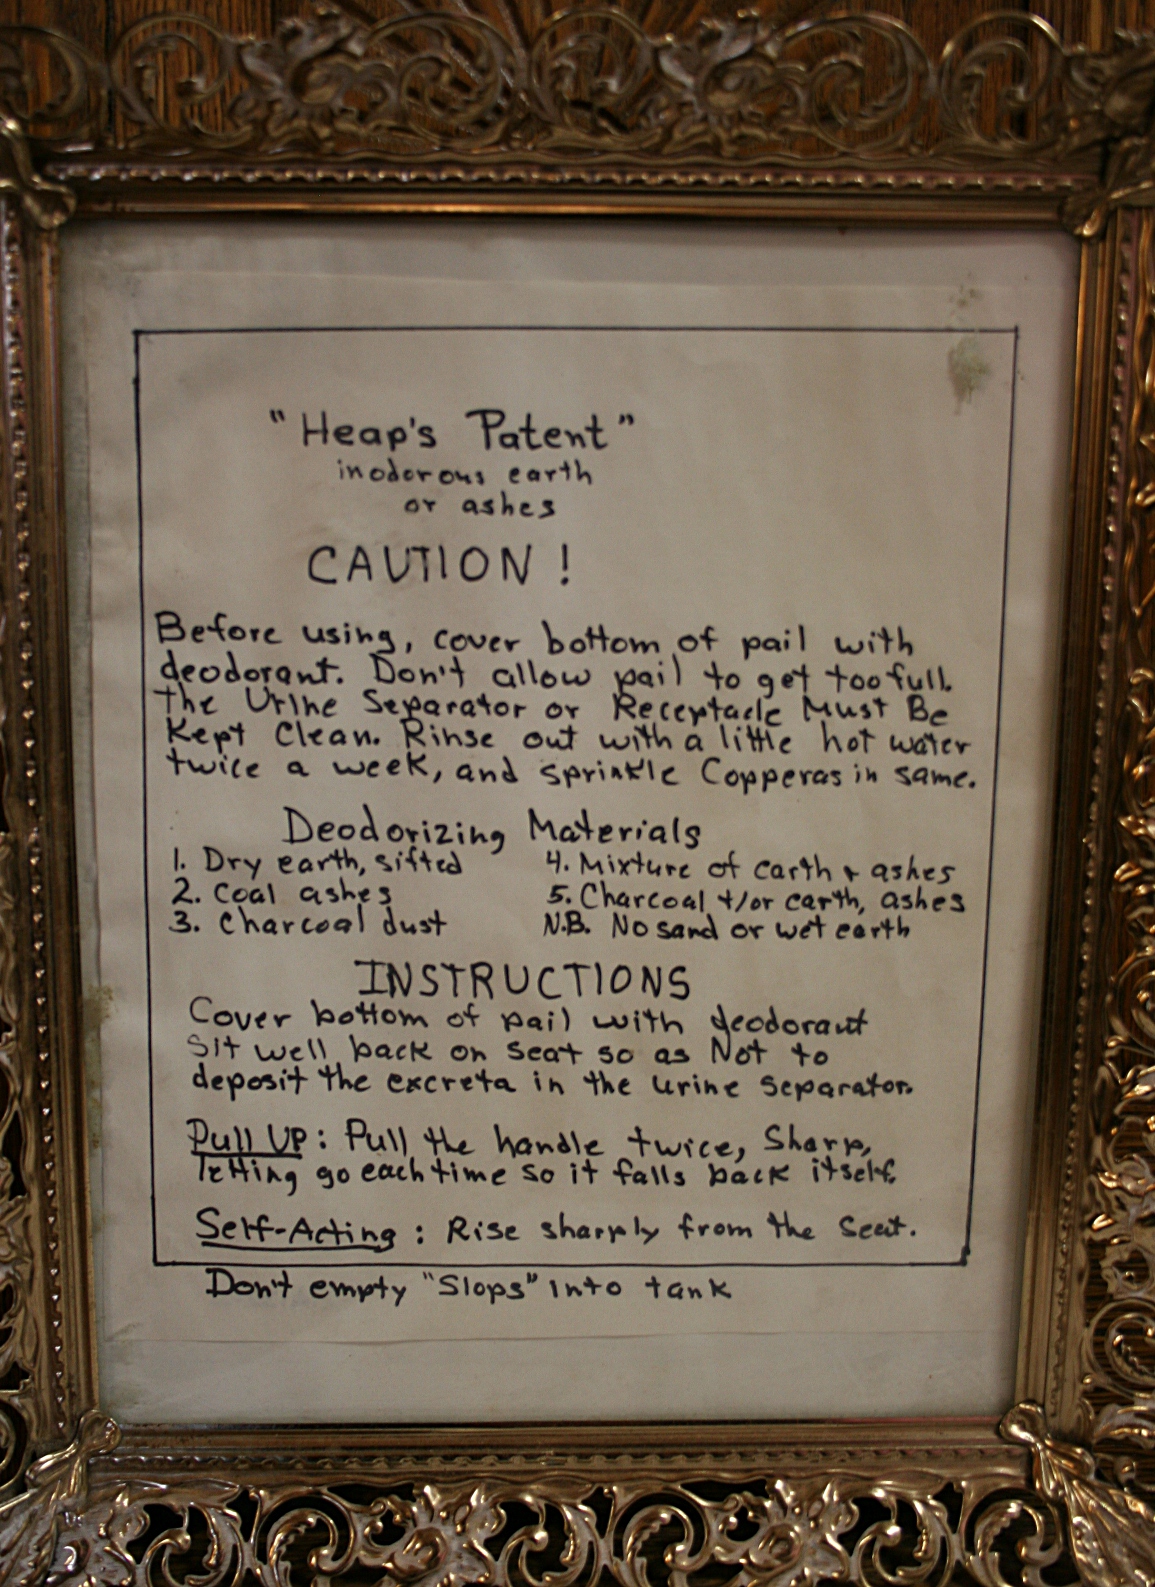 "Heap's Patent"
inodorous earth
or ashes
CAUTION !
Before using, cover bottom of pail with
deodorant. Don't allow pail to get too full.
The Urine Separator or Receptacle Must Be
Kept Clean. Rinse out with a little hot water
twice a week, and sprinkle Copperas in same.
Deodorizing Materials
1. Dry earth, sifted
2. Coal ashes
3. Charcoal dust
4. Mixture of earth + ashes
5. Charcoal +/or earth, ashes
N.B. No sand or wet earth
INSTRUCTIONS
Cover bottom of pail with deodorant
Sit well back on seat so as Not to
deposit the excreta in the urine separator.
Pull UP : Pull the handle twice, Sharp,
letting go each time so it falls back itself.
Self-Acting : Rise sharply from the seat.
Don't empty "Slops" into tank